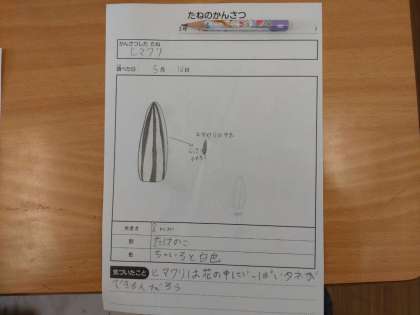 たねのかんさつ
かんさつした たね
ヒマワリ
調べた日 5月 10日
大きさ
形 たけのこ
色 ちゃいろと白色
気づいたこと ヒマワリは花の中にいっぱいタネが
できるんだろう